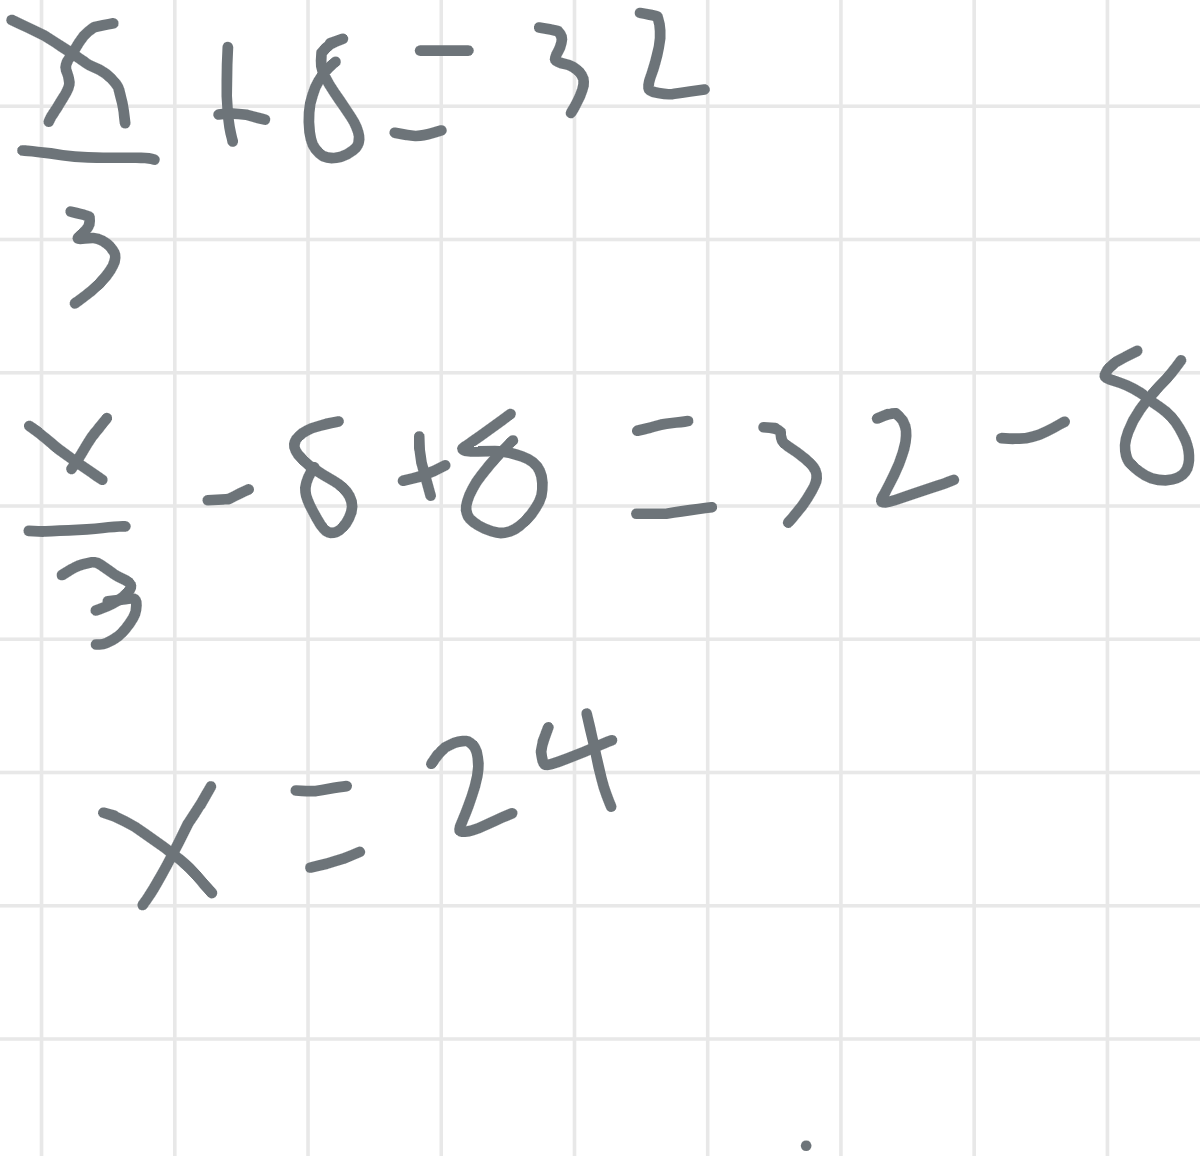 x/3 + 8 = 32
x/3 - 8 + 8 = 32 - 8
x = 24